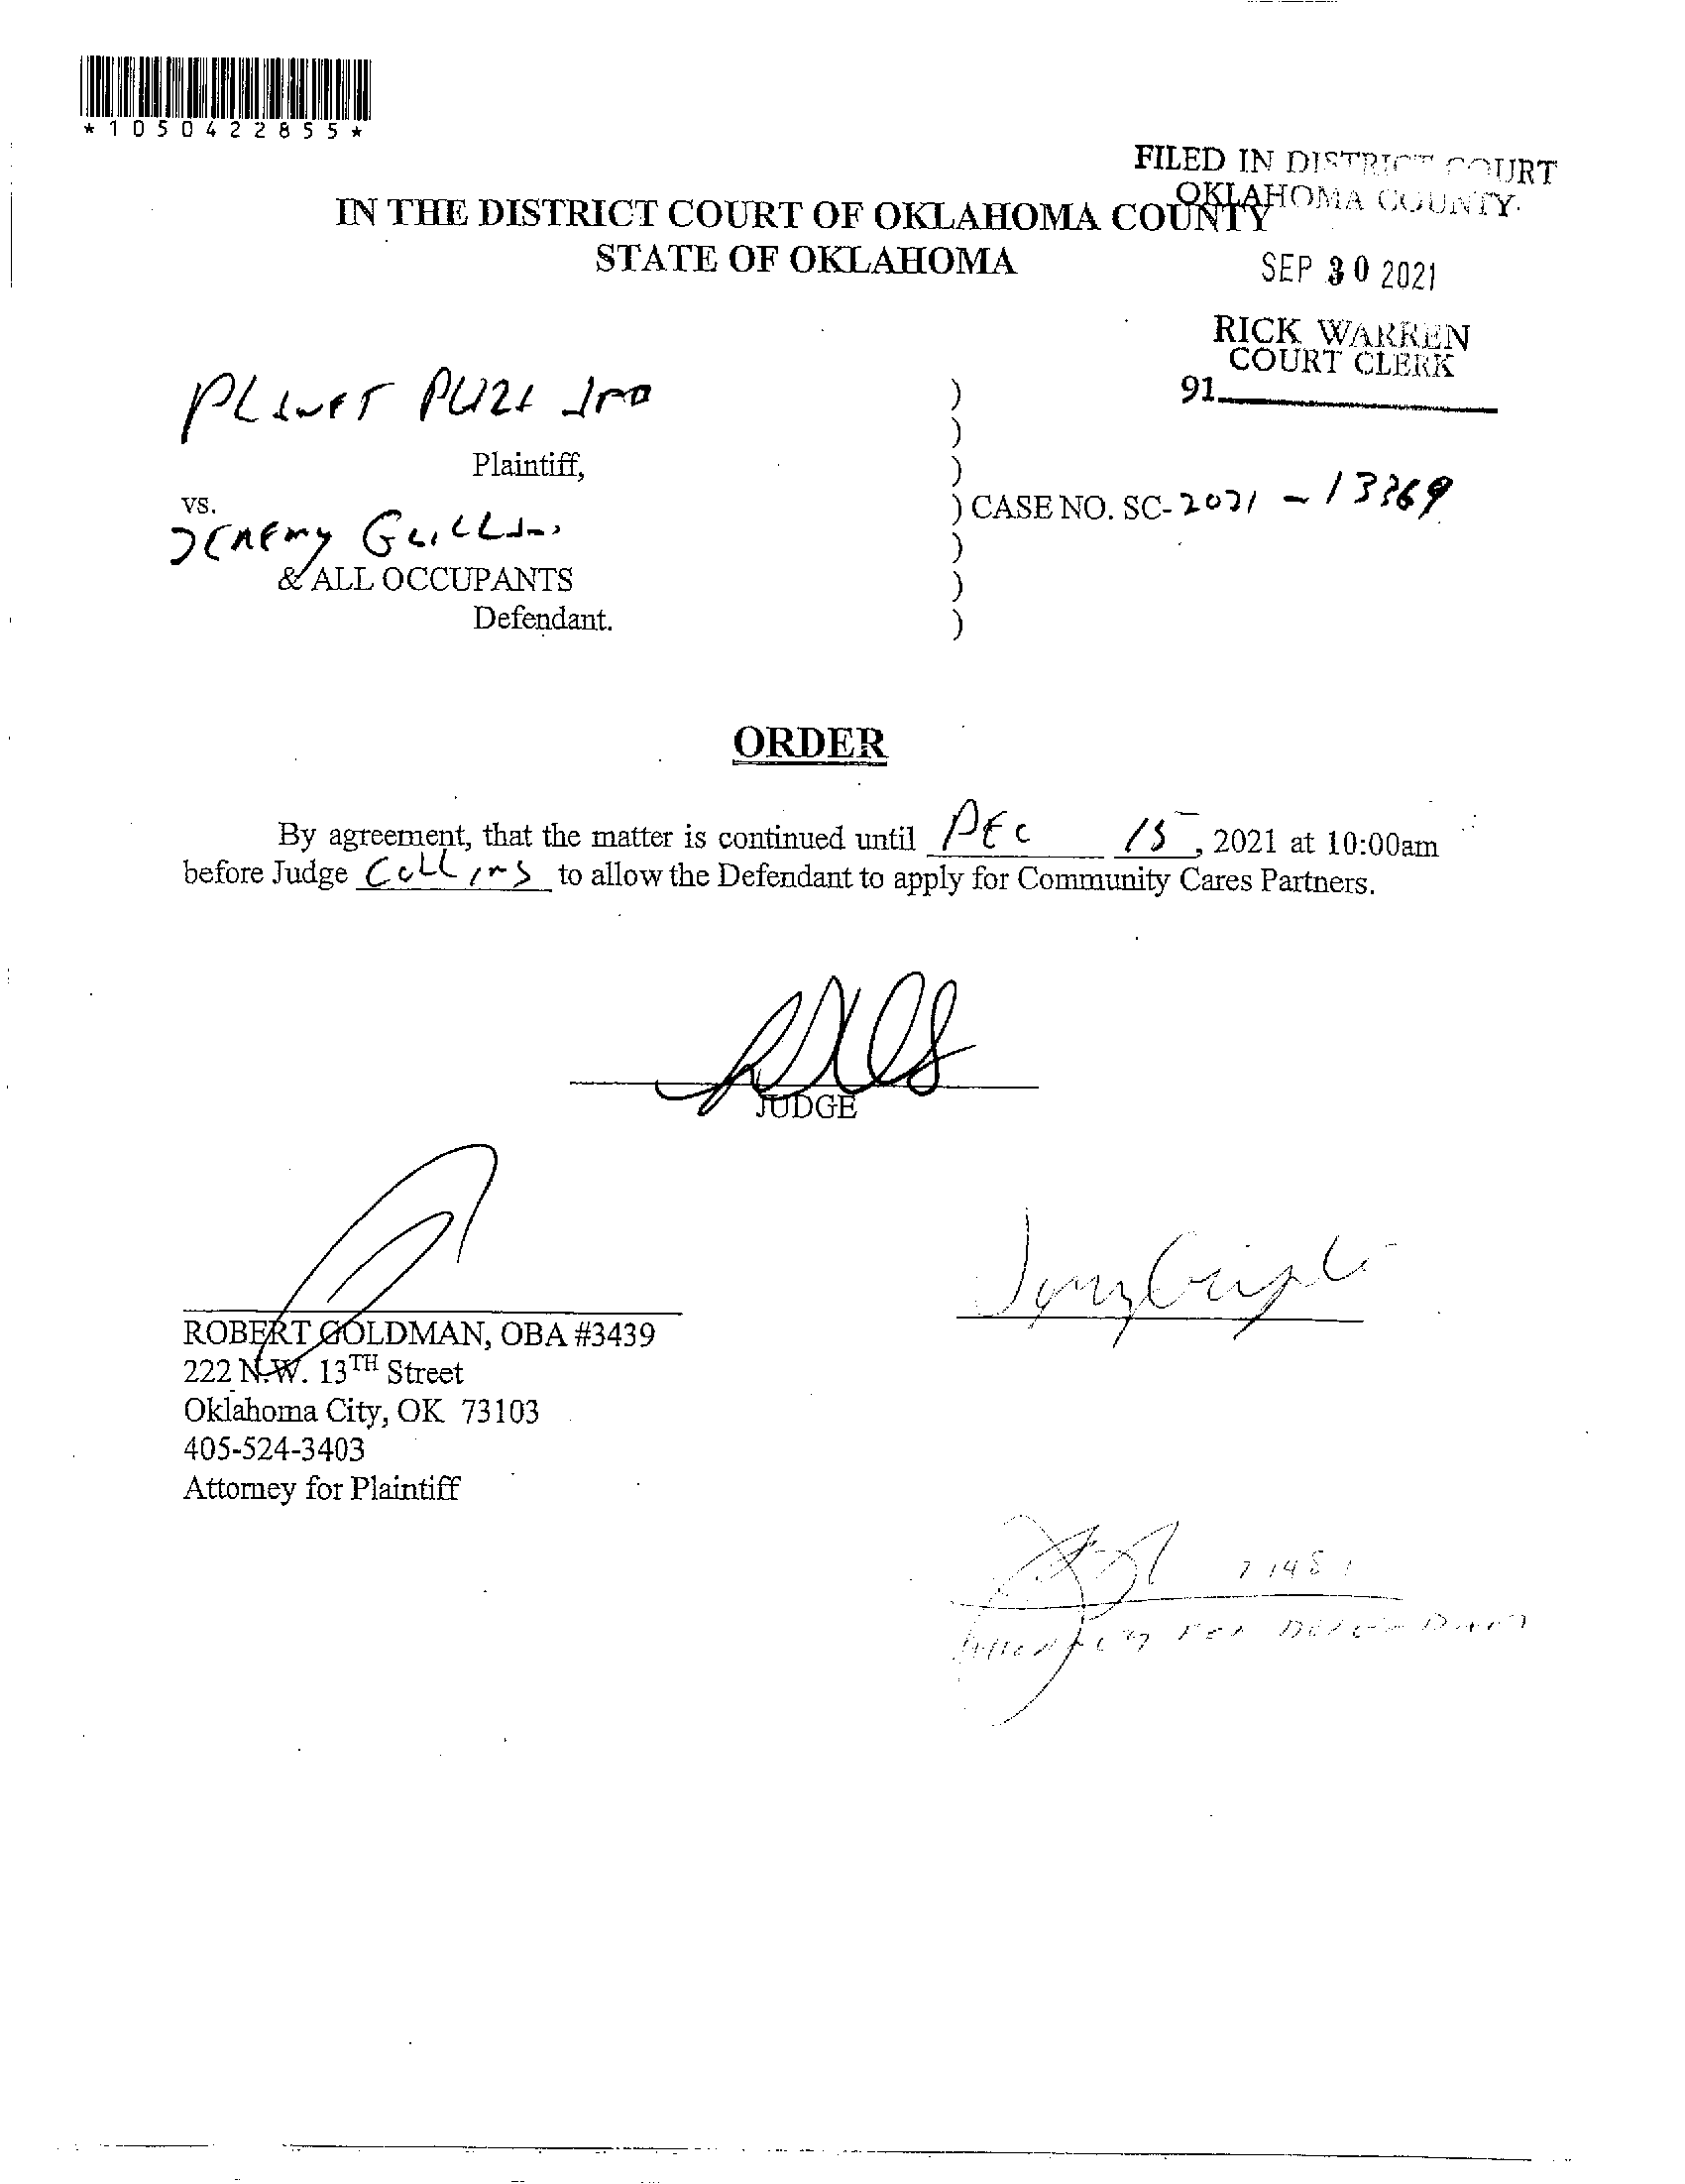 *1050422855*
FILED IN DISTRICT COURT
OKLAHOMA COUNTY.
IN THE DISTRICT COURT OF OKLAHOMA COUNTY
STATE OF OKLAHOMA
SEP 30 2021
RICK WARREN
COURT CLERK
91
Plaintiff,
vs.
JEREMY
& ALL OCCUPANTS
Defendant.
)
)
)
) CASE NO. SC-2021 - 13369
)
)
)
ORDER
By agreement, that the matter is continued until DEC 15, 2021 at 10:00am
before Judge Collins to allow the Defendant to apply for Community Cares Partners.
JUDGE
ROBERT GOLDMAN, OBA #3439
222 N.W. 13TH Street
Oklahoma City, OK 73103
405-524-3403
Attorney for Plaintiff
Attorney For Defendant